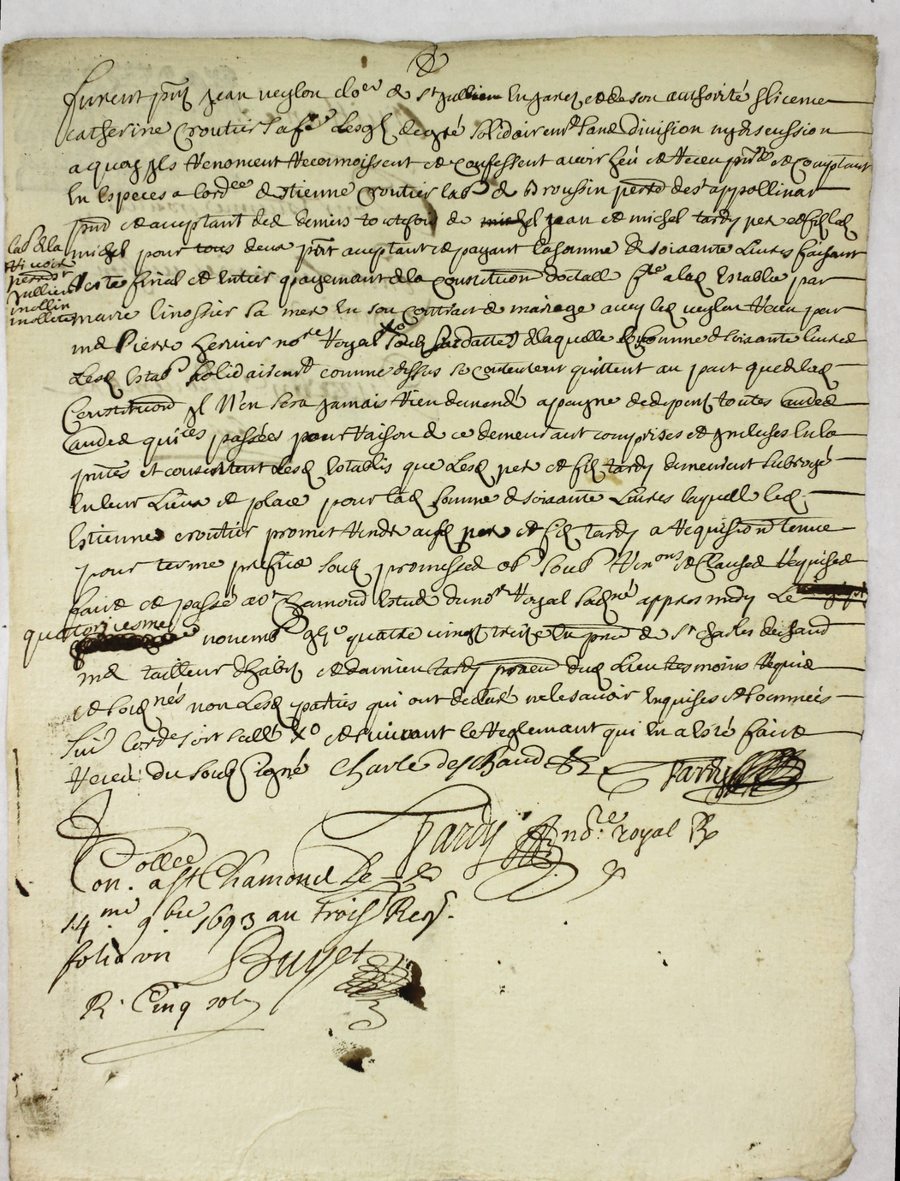 furent pnt Jean veylon clo.er de St Jullien en Jarez et de son authorité & licence
catherine croutier sa fe lesq de gré solidairemt sans division ny discussion
a quoy ils Renoncent Reconnoissent et confessent avoir heu et Receu pntt et comptant
en especes a lord.ce d'estienne croutier lab.r de broussin de St appollinar
pnt et acceptant des deniers toutefois de Jean et michel tardy per et fils led
michel pour tous deux pnt acceptant et payant la somme de soixante livres faisant
Reste final et entier payement de la constitution dotalle fte a lad establie par
marie linossier sa mere en son contract de mariage avec led veylon Receu par
me Pierre no.re Royal de laquelle somme de soixante livres
lesd estab.s solidairemt comme dessus se contentent quittent au par que de lad
constitution il n'en sera Jamais Rien demandé a payne de depens toutes
quitces passées pour Raison de ce demeurant comprises et incluses en la
pnte et consentent lesd establis que lesd per et fils tardy demeurent subrogé
en leur lieu et place pour lad somme de soixante livres laquelle led
Estienne croutier promet Rendre ausd per et fils tardy a Requisition tenue
pour terme prefix soub promesses ob soub Ren.ons et clauses Requises
faict et passé a St Chamond estude du no.re Royal sousné appres midy le
quatorziesme novemb. gbc quatre vingt treize en pnce de Sr charles deschaud
me tailleur d'habit et damien tardy dud lieu tesmoins Requis
et soignés non lesd parties qui ont declaré ne le savoir enquises et sommées
suiv lord.e et suivant le Reglemant qui en a esté faict
Receu du soub Signé Charle deschaud Tardy
lab.r de la
Rivoire
perroisse
Jullien
molin
molette
Tardy no.re royal R
Collee
Con. a St Chamond le
14.me 9.bre 1693 au trois Reg.
folio un
Buyet
R. Cinq sols